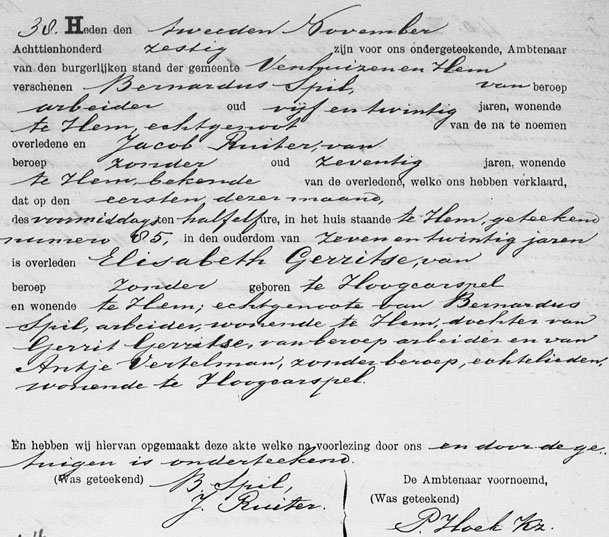 38. Heden den tweeden November
Achttienhonderd zestig zijn voor ons ondergeteekende, Ambtenaar
van den burgerlijken stand der gemeente Venhuizen en Hem
verschenen Bernardus Spil, van beroep
arbeider oud vijf en twintig jaren, wonende
te Hem, echtgenoot van de na te noemen
overledene en Jacob Ruiter, van
beroep zonder oud zeventig jaren, wonende
te Hem, bekende van de overledene, welke ons hebben verklaard,
dat op den eersten dezer maand,
des voormiddags ten half elf ure, in het huis staande te Hem, geteekend
numero 85, in den ouderdom van zeven en twintig jaren
is overleden Elisabeth Gerritse, van
beroep zonder geboren te Hoogcarspel
en wonende te Hem, echtgenoote van Bernardus
Spil, arbeider, wonende te Hem, dochter van
Gerrit Gerritse, van beroep arbeider en van
Antje Vertelman, zonder beroep, echtelieden,
wonende te Hoogcarspel.
En hebben wij hiervan opgemaakt deze akte welke na voorlezing door ons en door de ge-
tuigen is onderteekend.
(Was geteekend) B Spil, De Ambtenaar voornoemd,
J. Ruiter. (Was geteekend)
P. Hoek Kz.